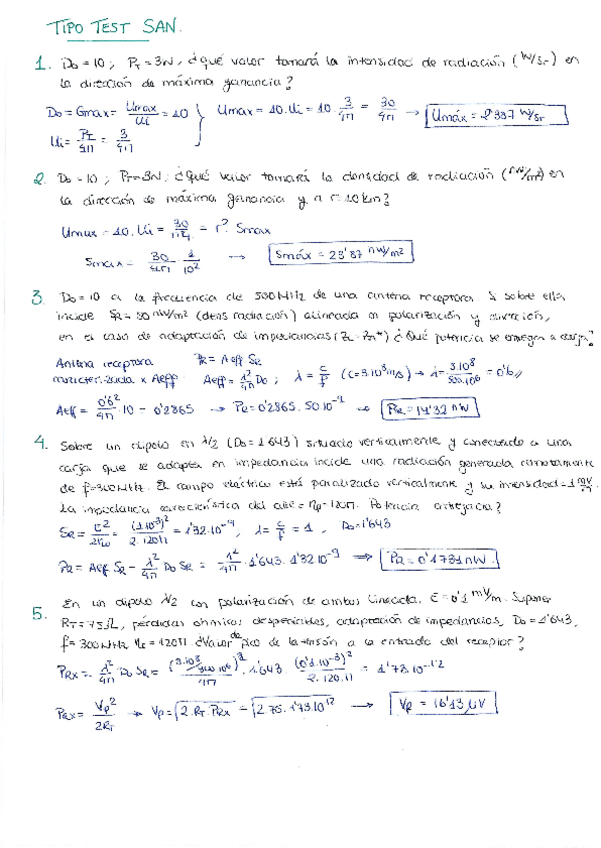 TIPO TEST SAN.
1. Do = 10 ; PT = 3W, ¿qué valor tomará la intensidad de radiación (W/Sr) en
la dirección de máxima ganancia?
Do = Gmax = Umax/Ui = 10 } Umax = 10·Ui = 10· 3/4π = 30/4π → Umáx = 2'387 W/Sr
Ui = PT/4π = 3/4π
2. Do = 10 ; PT = 3W, ¿Qué valor tomará la densidad de radiación (nW/m²) en
la dirección de máxima ganancia y a r = 10 km?
Umax = 10·Ui = 30/4π = r²·Smax
Smax = 30/4π · 1/10² → Smáx = 23'87 nW/m²
3. Do = 10 a la frecuencia de 500 MHz de una antena receptora. Si sobre ella
incide SR = 50 nW/m² (dens radiación) alineada en polarización y dirección,
en el caso de adaptación de impedancias ¿Qué potencia se entrega a carga?
Antena receptora PR = Aeff SR
caracterizada x Aeff Aeff = λ²/4π Do ; λ = c/f (c = 3·10⁸ m/s) → λ = 3·10⁸/500·10⁶ = 0'6
Aeff = 0'6²/4π · 10 = 0'2865 → PR = 0'2865 · 50·10⁻⁹ → PR = 14'32 nW
4. Sobre un dipolo en λ/2 (Do = 1'643) situado verticalmente y conectado a una
carga que se adapta en impedancia incide una radiación generada remotamente
de f = 300 MHz. El campo eléctrico está polarizado verticalmente y su intensidad = 1 mV/m.
La impedancia característica del aire = 120π. Potencia entregada?
SR = E²/2 = (1·10⁻³)²/2·120π = 1'32·10⁻⁹, λ = c/f = 1, Do = 1'643
PR = Aeff SR = λ²/4π Do SR = 1²/4π · 1'643 · 1'32·10⁻⁹ → PR = 0'1731 nW.
5. En un dipolo λ/2 con polarización de ambos lineada, E = 0'1 mV/m. Suponer
RT = 75 Ω, pérdidas óhmicas despreciables, adaptación de impedancias, Do = 1'643,
f = 300 MHz = 120π. ¿Valor de pico de la tensión a la entrada del receptor?
PRX = λ²/4π Do SR = (3·10⁸/300·10⁶)²/4π · 1'643 · (0'1·10⁻³)²/2·120·π = 1'73·10⁻¹²
PRX = Vp²/2RT → Vp = √2·RT·PRX = √2·75·1'73·10¹² → Vp = 16'13 μV